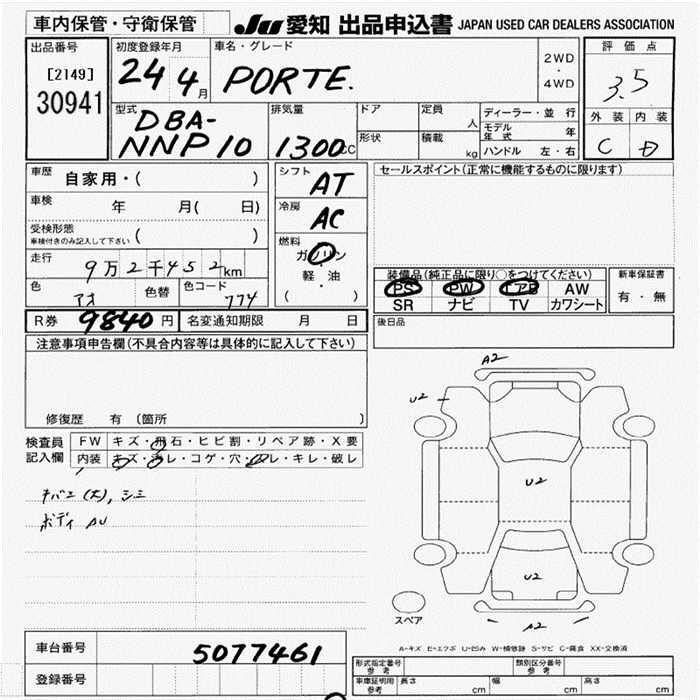 車内保管・守衛保管
JU 愛知 出品申込書 JAPAN USED CAR DEALERS ASSOCIATION
出品番号
[2149]
30941
初度登録年月
24 4月
車名・グレード
PORTE.
2WD
・
4WD
評価点
3.5
外装 内装
C D
型式
DBA-
NNP10
排気量
1300cc
ドア
形状
定員
人
積載
kg
ディーラー・並行
モデル年式 年
ハンドル 左・右
車歴
自家用・( )
車検
年 月( 日)
受検形態
車検付きのみ記入して下さい ( )
走行
9万2千452km
色
アオ
色替
色コード
774
シフト
AT
冷房
AC
燃料
ガソリン
・
軽・油
( )
セールスポイント(正常に機能するものに限ります)
装備品(純正品に限り○をつけてください)
PS PW エアB AW
SR ナビ TV カワシート
新車保証書
有・無
R券 9840円
名変通知期限 月 日
後日品
注意事項申告欄(不具合内容等は具体的に記入して下さい)
修復歴 有 〔箇所 〕
検査員
記入欄
FW キズ・飛石・ヒビ割・リペア跡・X要
内装 キズ・ヨレ・コゲ・穴・スレ・キレ・破レ
ボディ AU
A2
U2
U2
U2
A2
スペア
A-キズ E-エクボ U-凹み W-補修跡 S-サビ C-腐食 XX-交換済
車台番号
5077461
登録番号
形式指定番号
参考
類別区分番号
参考
車庫証明用
参考
長さ cm
幅 cm
高さ cm